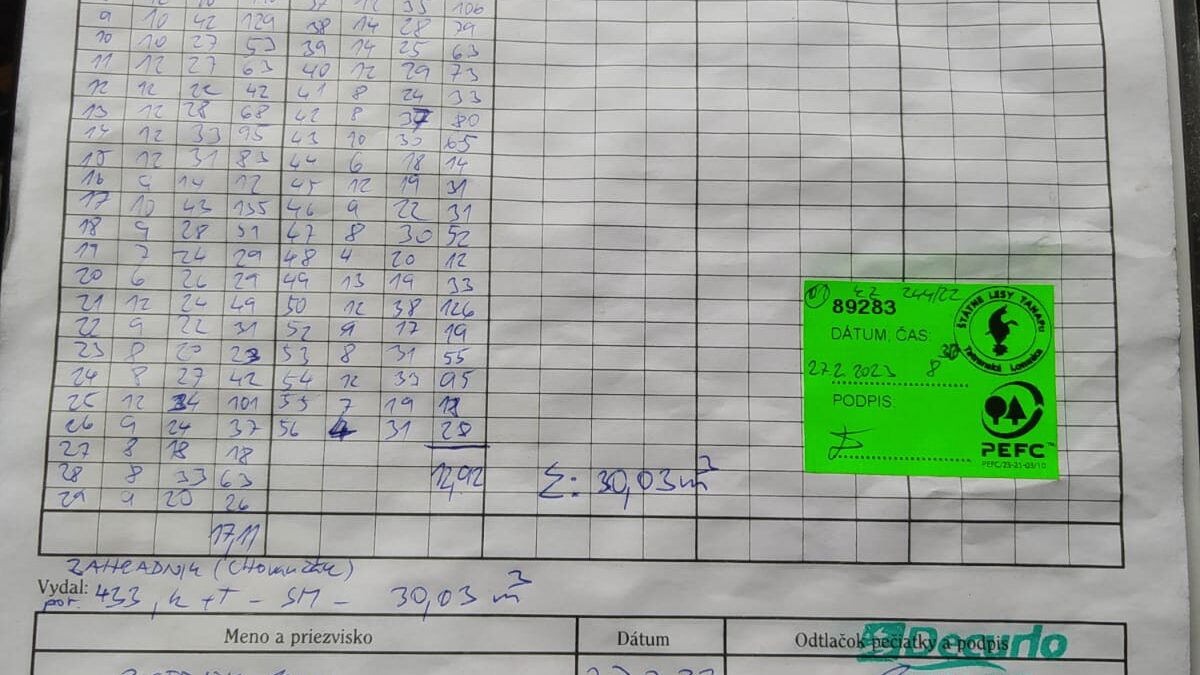 37 12 35 106
9 10 42 129 38 14 28 79
10 10 27 53 39 14 25 63
11 12 27 63 40 12 29 73
12 12 22 42 41 8 24 33
13 12 28 68 42 8 37 80
14 12 33 95 43 10 30 65
15 12 31 83 44 6 18 14
16 9 14 12 45 12 19 31
17 10 43 135 46 9 22 31
18 9 28 51 47 8 30 52
19 7 24 29 48 4 20 12
20 6 26 29 49 13 19 33
21 12 24 49 50 12 38 126
22 9 22 31 52 9 17 19
23 8 23 53 8 31 55
24 8 27 42 54 12 33 95
25 12 34 101 55 7 19 18
26 9 24 37 56 4 31 28
27 8 18 18
28 8 33 63 12,92 Σ: 30,03 m³
29 9 20 26
17,11
244/22
89283
ŠTÁTNE LESY TANAPU
Tatranská Lomnica
DÁTUM, ČAS:
27.2.2023 8 30
PODPIS:
PEFC™
PEFC/23-21-03/10
ZAHRADNIK
Vydal:
por. 433, K+T - SM - 30,03 m³
Meno a priezvisko Dátum Odtlačok pečiatky a podpis
Decurio